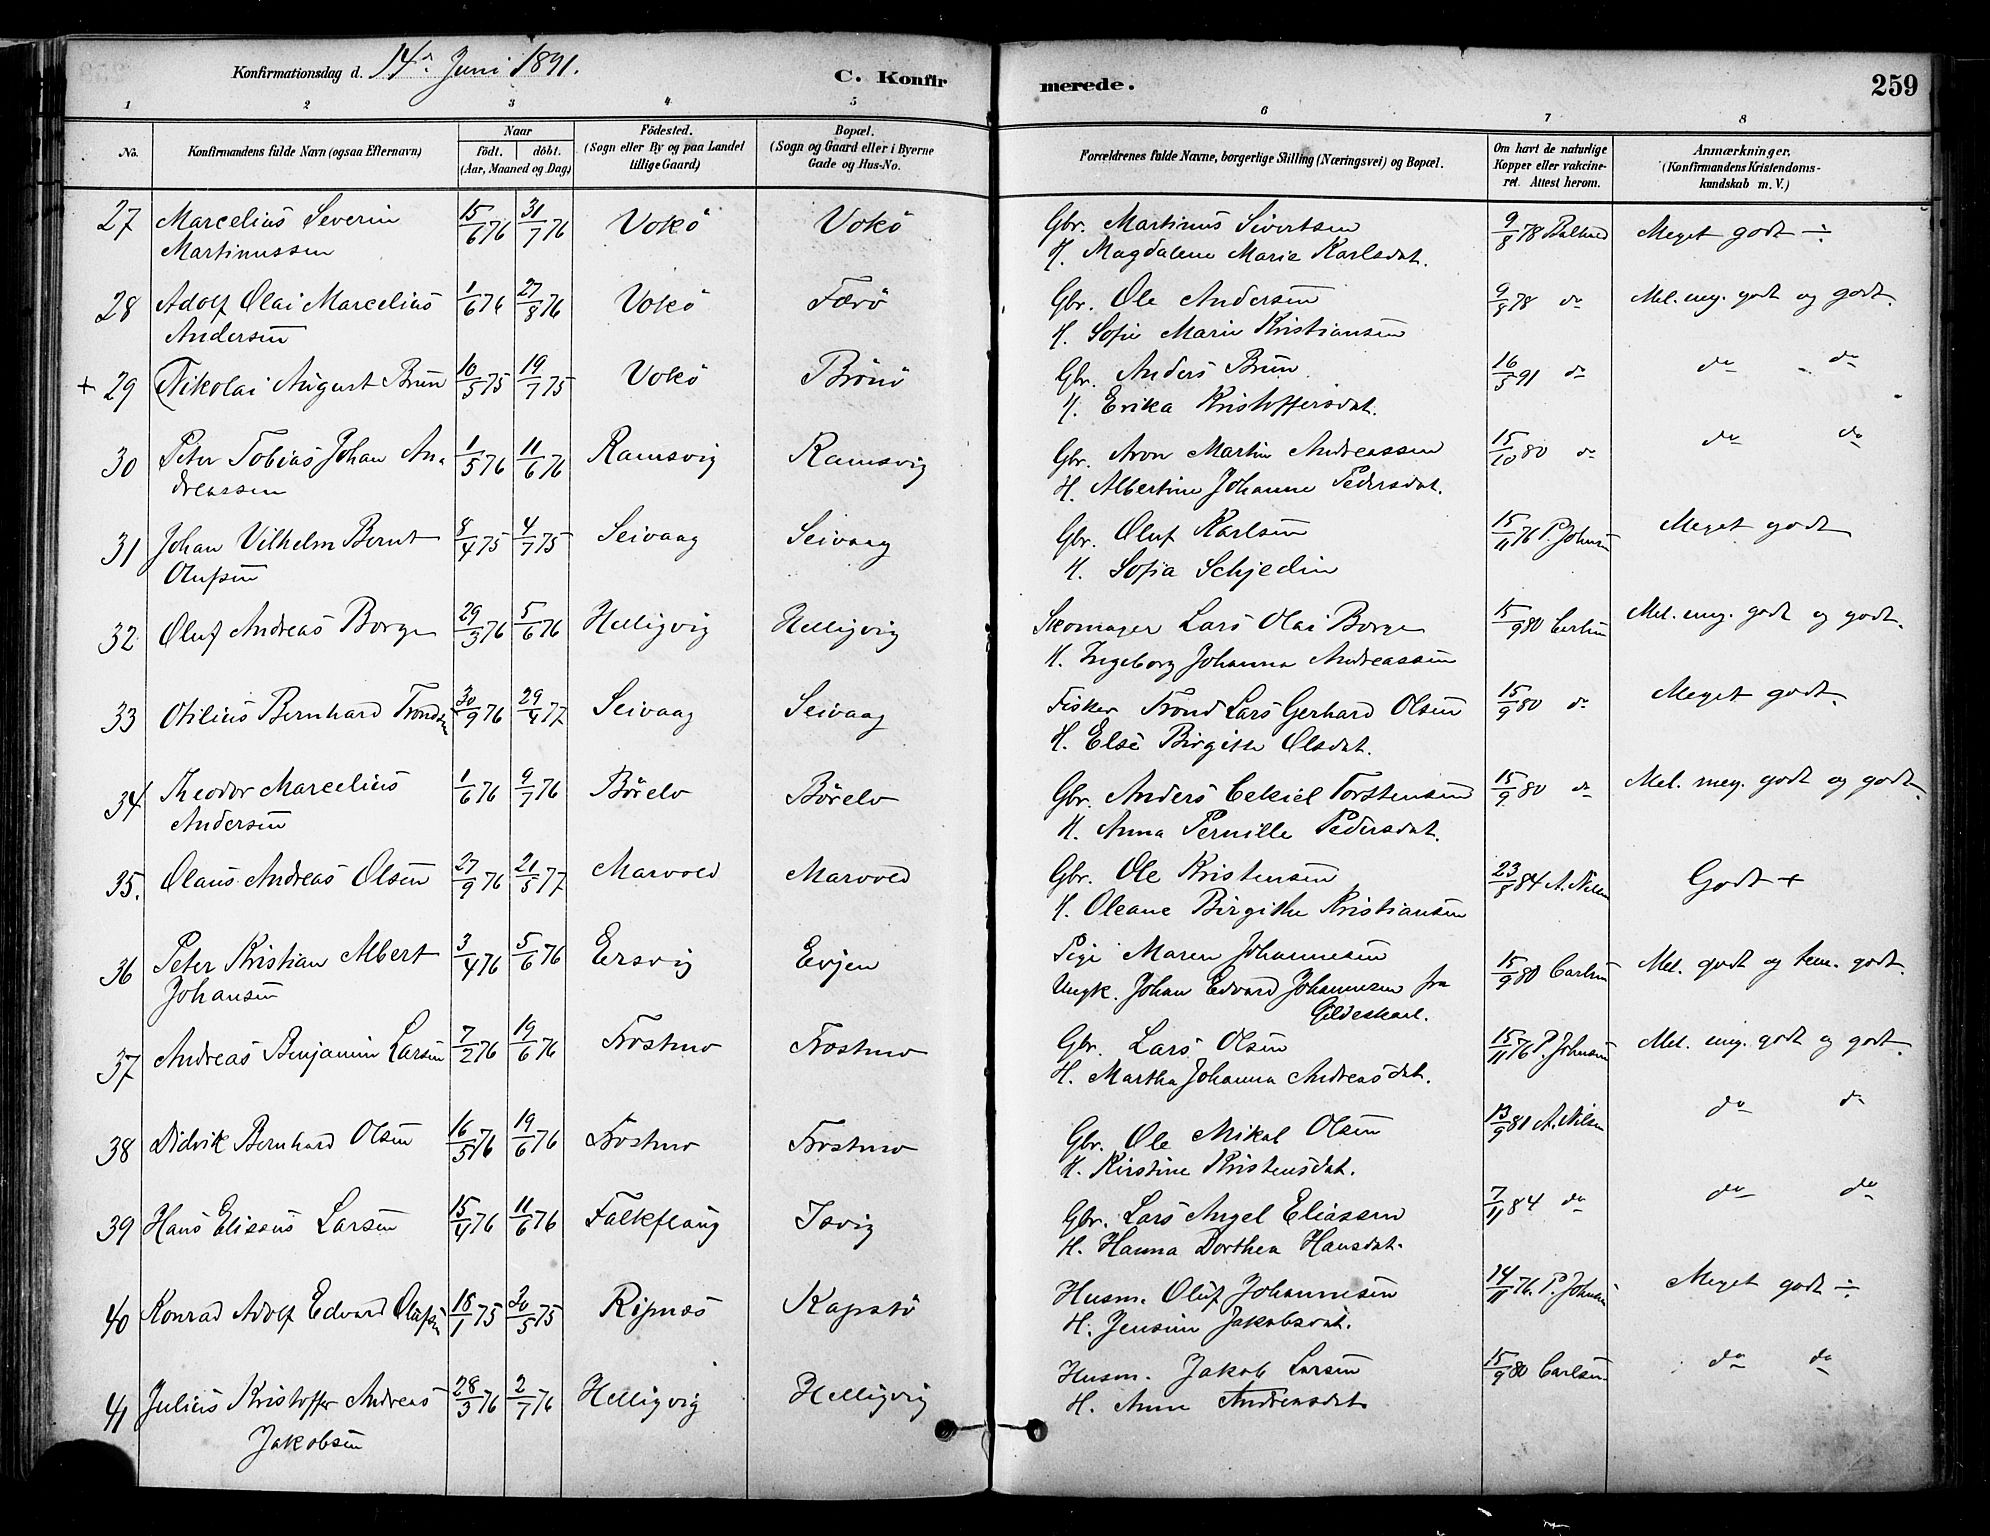 Konfirmationsdag d. 14de Juni 1891.
C. Konfirmerede.
259
1 2 3 4 5 6 7 8
No.
Konfirmandens fulde Navn (ogsaa Efternavn)
Naar
født. døbt.
(Aar, Maaned og Dag)
Fødested.
(Sogn eller By og paa Landet
tillige Gaard)
Bopæl.
(Sogn og Gaard eller i Byerne
Gade og Hus-No.
Forældrenes fulde Navne, borgerlige Stilling (Næringsvei) og Bopæl.
Om havt de naturlige
Kopper eller vakcine-
ret. Attest herom.
Anmærkninger.
(Konfirmandens Kristendoms-
kundskab m. V.)
27 Marcelius Severin 15/6 76 31/7 76 Vokö Vokö Gbr. Martinus Sivertsen 9/8 78 Meget godt ÷
Martinussen H. Magdalene Marie Karlsdat.
28 Adolf Olai Marcelius 1/6 76 27/8 76 Vokö Færö Gbr. Ole Andersen 9/8 78 do Mel. meg. godt og godt.
Andersen H. Sofie Marie Kristiansen
+ 29 Nikolai August Brun 10/5 75 19/7 75 Vokö Brönö Gbr. Anders Brun 16/5 91 do do do
H. Erika Kristoffersdat.
30 Peter Tobias Johan An- 1/5 76 11/6 76 Ramsvig Ramsvig Gbr. Aron Martin Andreassen 15/10 80 do do do
dreassen H. Albertine Johanne Pedersdat.
31 Johan Vilhelm Bernt 8/4 75 4/7 75 Seivaag Seivaag Gbr. Oluf Karlsen 15/11 76 P. Johnsen Meget godt
Olufsen H. Sofia Schjedin
32 Oluf Andreas Borge 29/3 76 5/6 76 Helligvig Helligvig Skomager Lars Olai Borge 15/9 80 Carlsen Mel. meg. godt og godt.
H. Ingeborg Johanna Andreassen
33 Otilius Bernhard Trondsen 30/9 76 29/4 77 Seivaag Seivaag Fisker Trond Lars Gerhard Olsen 15/9 80 do Meget godt.
H. Else Birgitte Olsdat.
34 Theodor Marcelius 1/6 76 9/7 76 Börelv Börelv Gbr. Anders Cekiel Torstensen 15/9 80 do Mel. meg. godt og godt.
Andersen H. Anna Pernille Pedersdat.
35. Olaus Andreas Olsen 27/9 76 21/5 77 Marvold Marvold Gbr. Ole Kristensen 23/8 84 A. Nilsen Godt +
H. Oleane Birgitte Kristiansen
36 Peter Kristian Albert 3/4 76 5/6 76 Ersvig Evjen Pige Maren Johannesen 15/9 80 Carlsen Mel. godt og tem. godt.
Johansen Ungk. Johan Edvard Johannesen fra
Gildeskaal.
37 Andreas Benjamin Larsen 7/2 76 19/6 76 Frostmo Frostmo Gbr. Lars Olsen 15/11 76 P. Johnsen Mel. meg. godt og godt.
H. Martha Johanna Andreasdat.
38 Didrik Bernhard Olsen 16/5 76 19/6 76 Frostmo Frostmo Gbr. Ole Mikal Olsen 13/9 81 A. Nilsen do do
H. Kirstine Kristensdat.
39 Hans Eliseus Larsen 15/4 76 11/6 76 Falkflaug Isvig Gbr. Lars Angel Eliassen 7/11 84 do do do
H. Hanna Dorthea Hansdat.
40 Konrad Adolf Edvard Olufsen 18/1 75 30/5 75 Ripnæs Kapstö Husm. Oluf Johannesen 14/11 76. P. Johnsen Meget godt ÷
H. Jensine Jakobsdat.
41 Julius Kristoffer Andreas 28/3 76 2/7 76 Helligvig Helligvig Husm. Jakob Larsen 15/9 80 Carlsen do do
Jakobsen H. Anne Andreasdat.